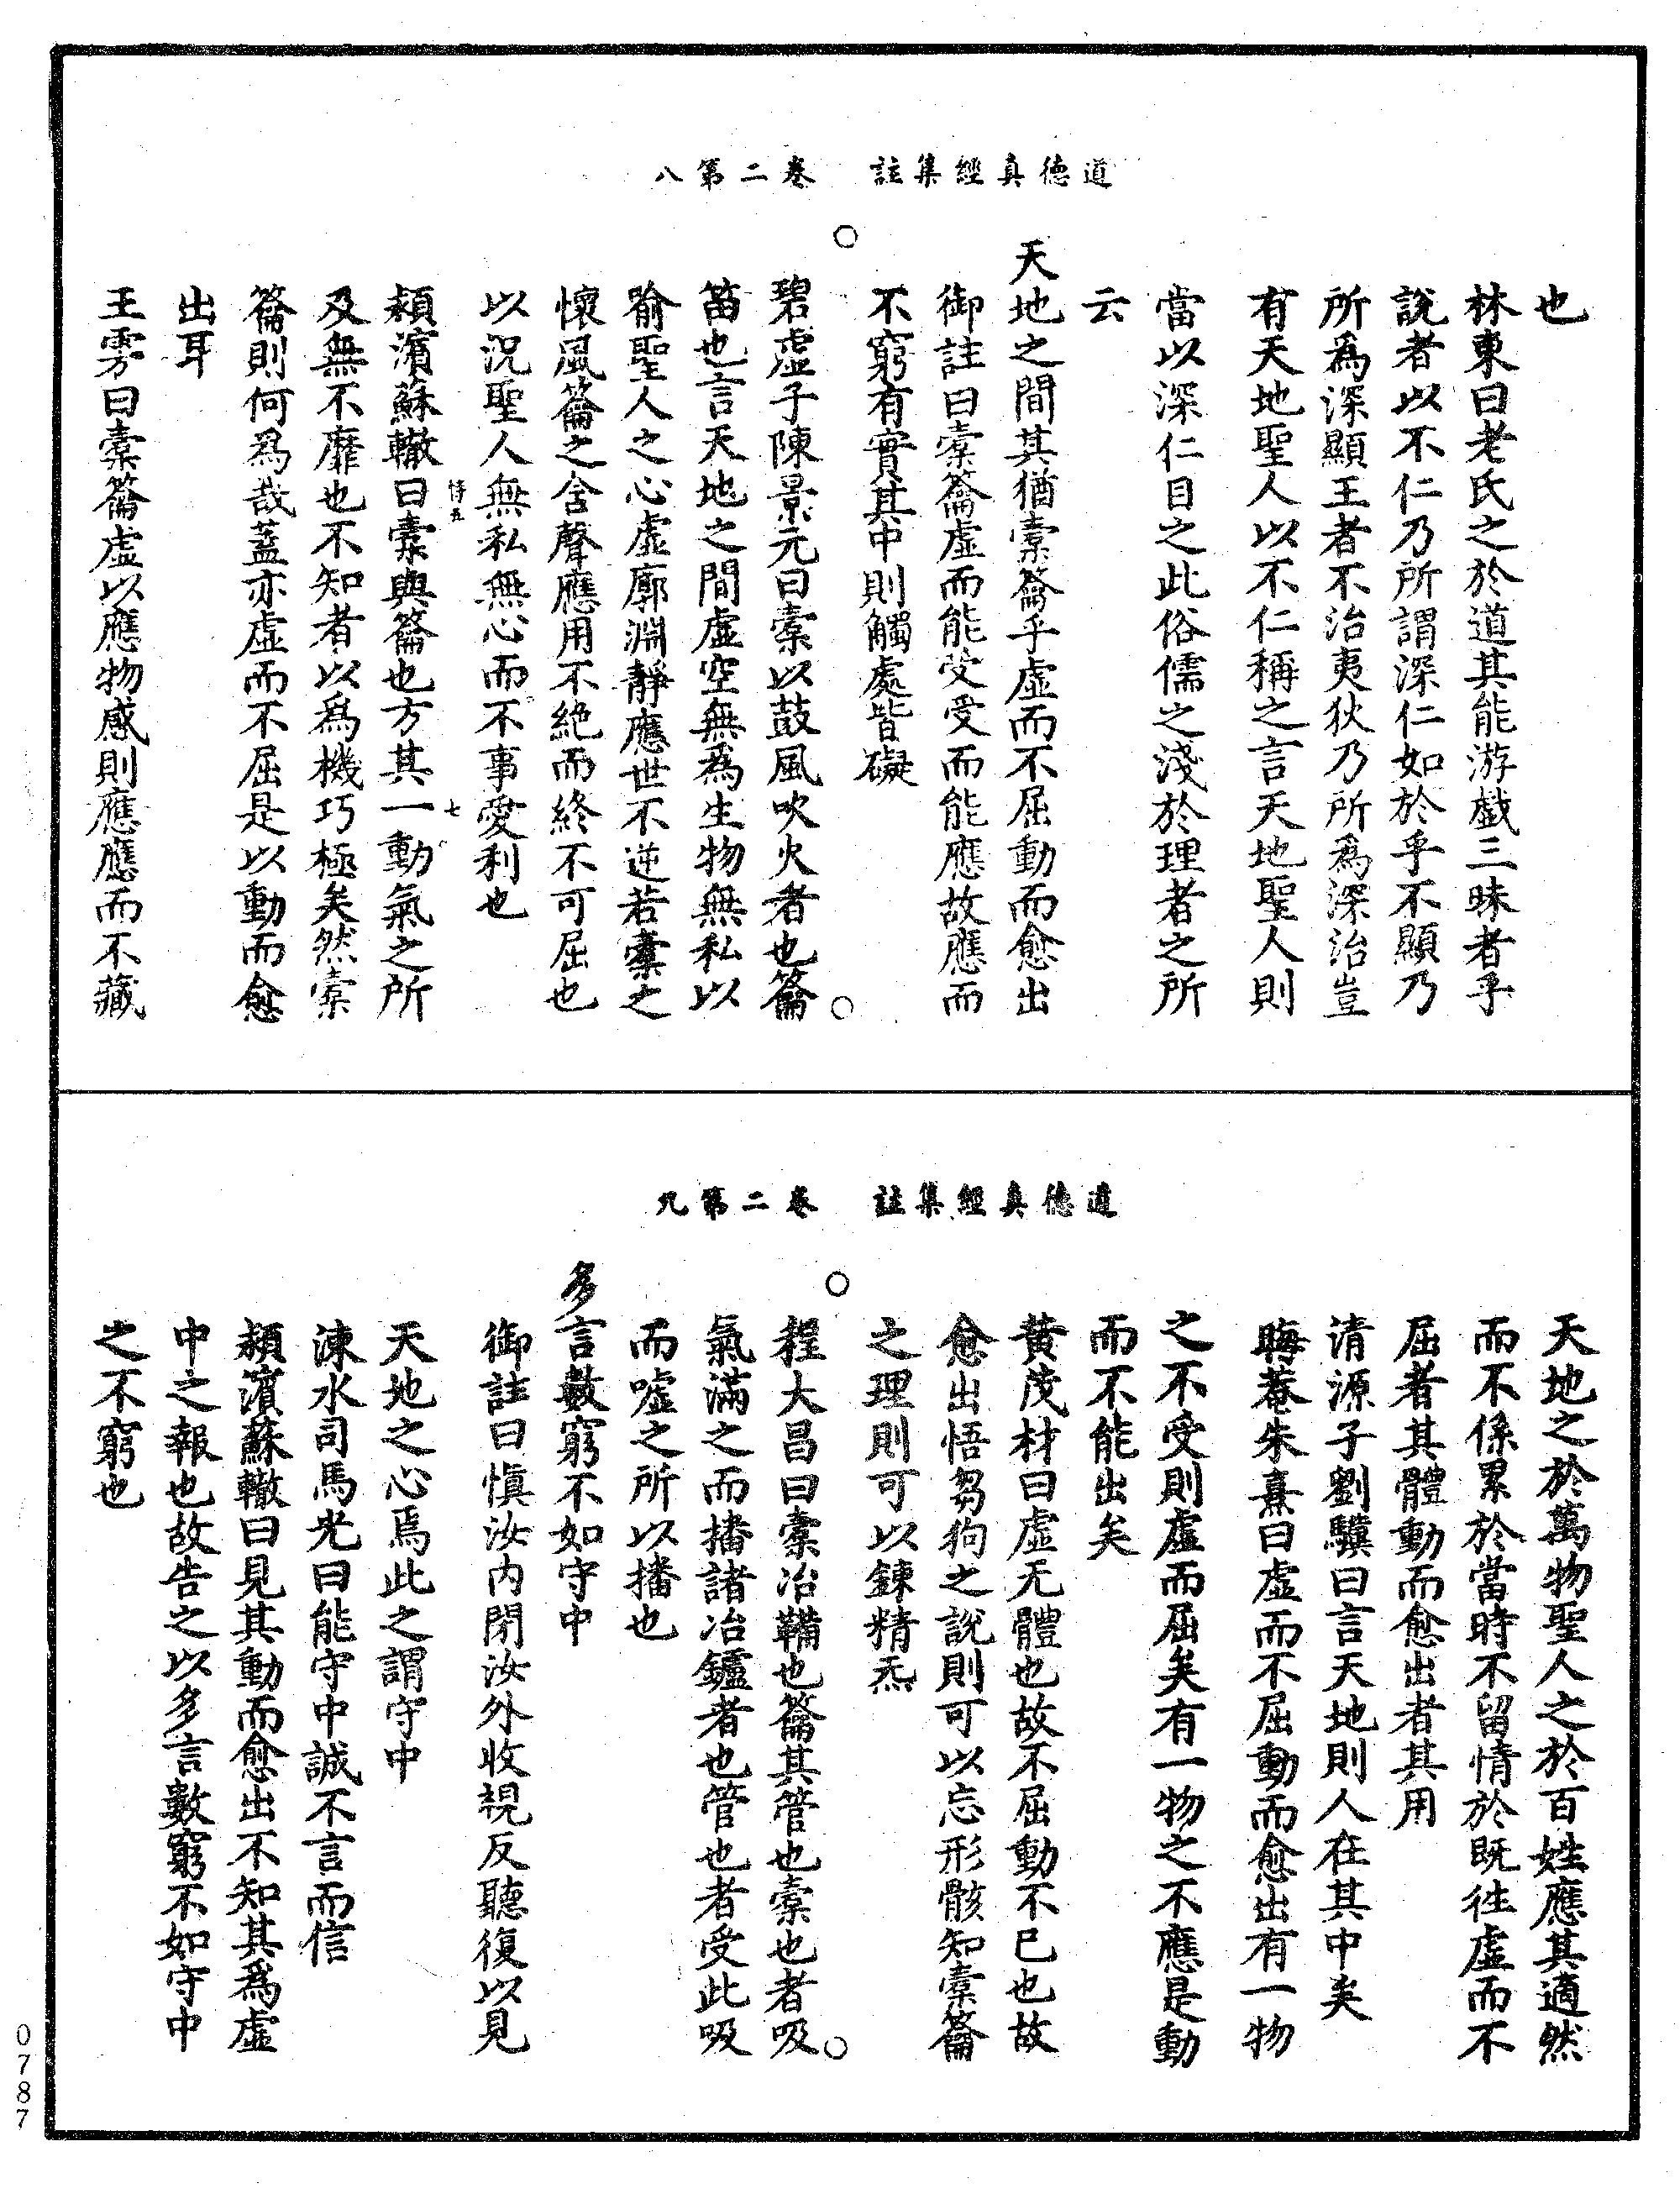 道德真經集註　卷二第八
也
林東曰老氏之於道其能游戲三昧者乎
說者以不仁乃所謂深仁如於乎不顯乃
所爲深顯王者不治夷狄乃所爲深治豈
有天地聖人以不仁稱之言天地聖人則
當以深仁目之此俗儒之淺於理者之所
云
天地之間其猶橐籥乎虛而不屈動而愈出
御註曰橐籥虛而能受受而能應故應而
不窮有實其中則觸處皆礙
碧虛子陳景元曰橐以鼓風吹火者也籥
笛也言天地之間虛空無爲生物無私以
喻聖人之心虛廓淵靜應世不逆若橐之
懷風籥之含聲應用不絕而終不可屈也
以況聖人無私無心而不事愛利也
恃五　七
潁濱蘇轍曰橐與籥也方其一動氣之所
及無不靡也不知者以爲機巧極矣然橐
籥則何爲哉蓋亦虛而不屈是以動而愈
出耳
王雱曰橐籥虛以應物感則應應而不藏
道德真經集註　卷二第九
天地之於萬物聖人之於百姓應其適然
而不係累於當時不留情於既往虛而不
屈者其體動而愈出者其用
清源子劉驥曰言天地則人在其中矣
晦菴朱熹曰虛而不屈動而愈出有一物
之不受則虛而屈矣有一物之不應是動
而不能出矣
黃茂材曰虛无體也故不屈動不已也故
愈出悟芻狗之說則可以忘形骸知橐籥
之理則可以鍊精炁
程大昌曰橐冶鞴也籥其管也橐也者吸
氣滿之而播諸冶鑪者也管也者受此吸
而噓之所以播也
多言數窮不如守中
御註曰愼汝內閉汝外收視反聽復以見
天地之心焉此之謂守中
涑水司馬光曰能守中誠不言而信
潁濱蘇轍曰見其動而愈出不知其爲虛
中之報也故告之以多言數窮不如守中
之不窮也
0787